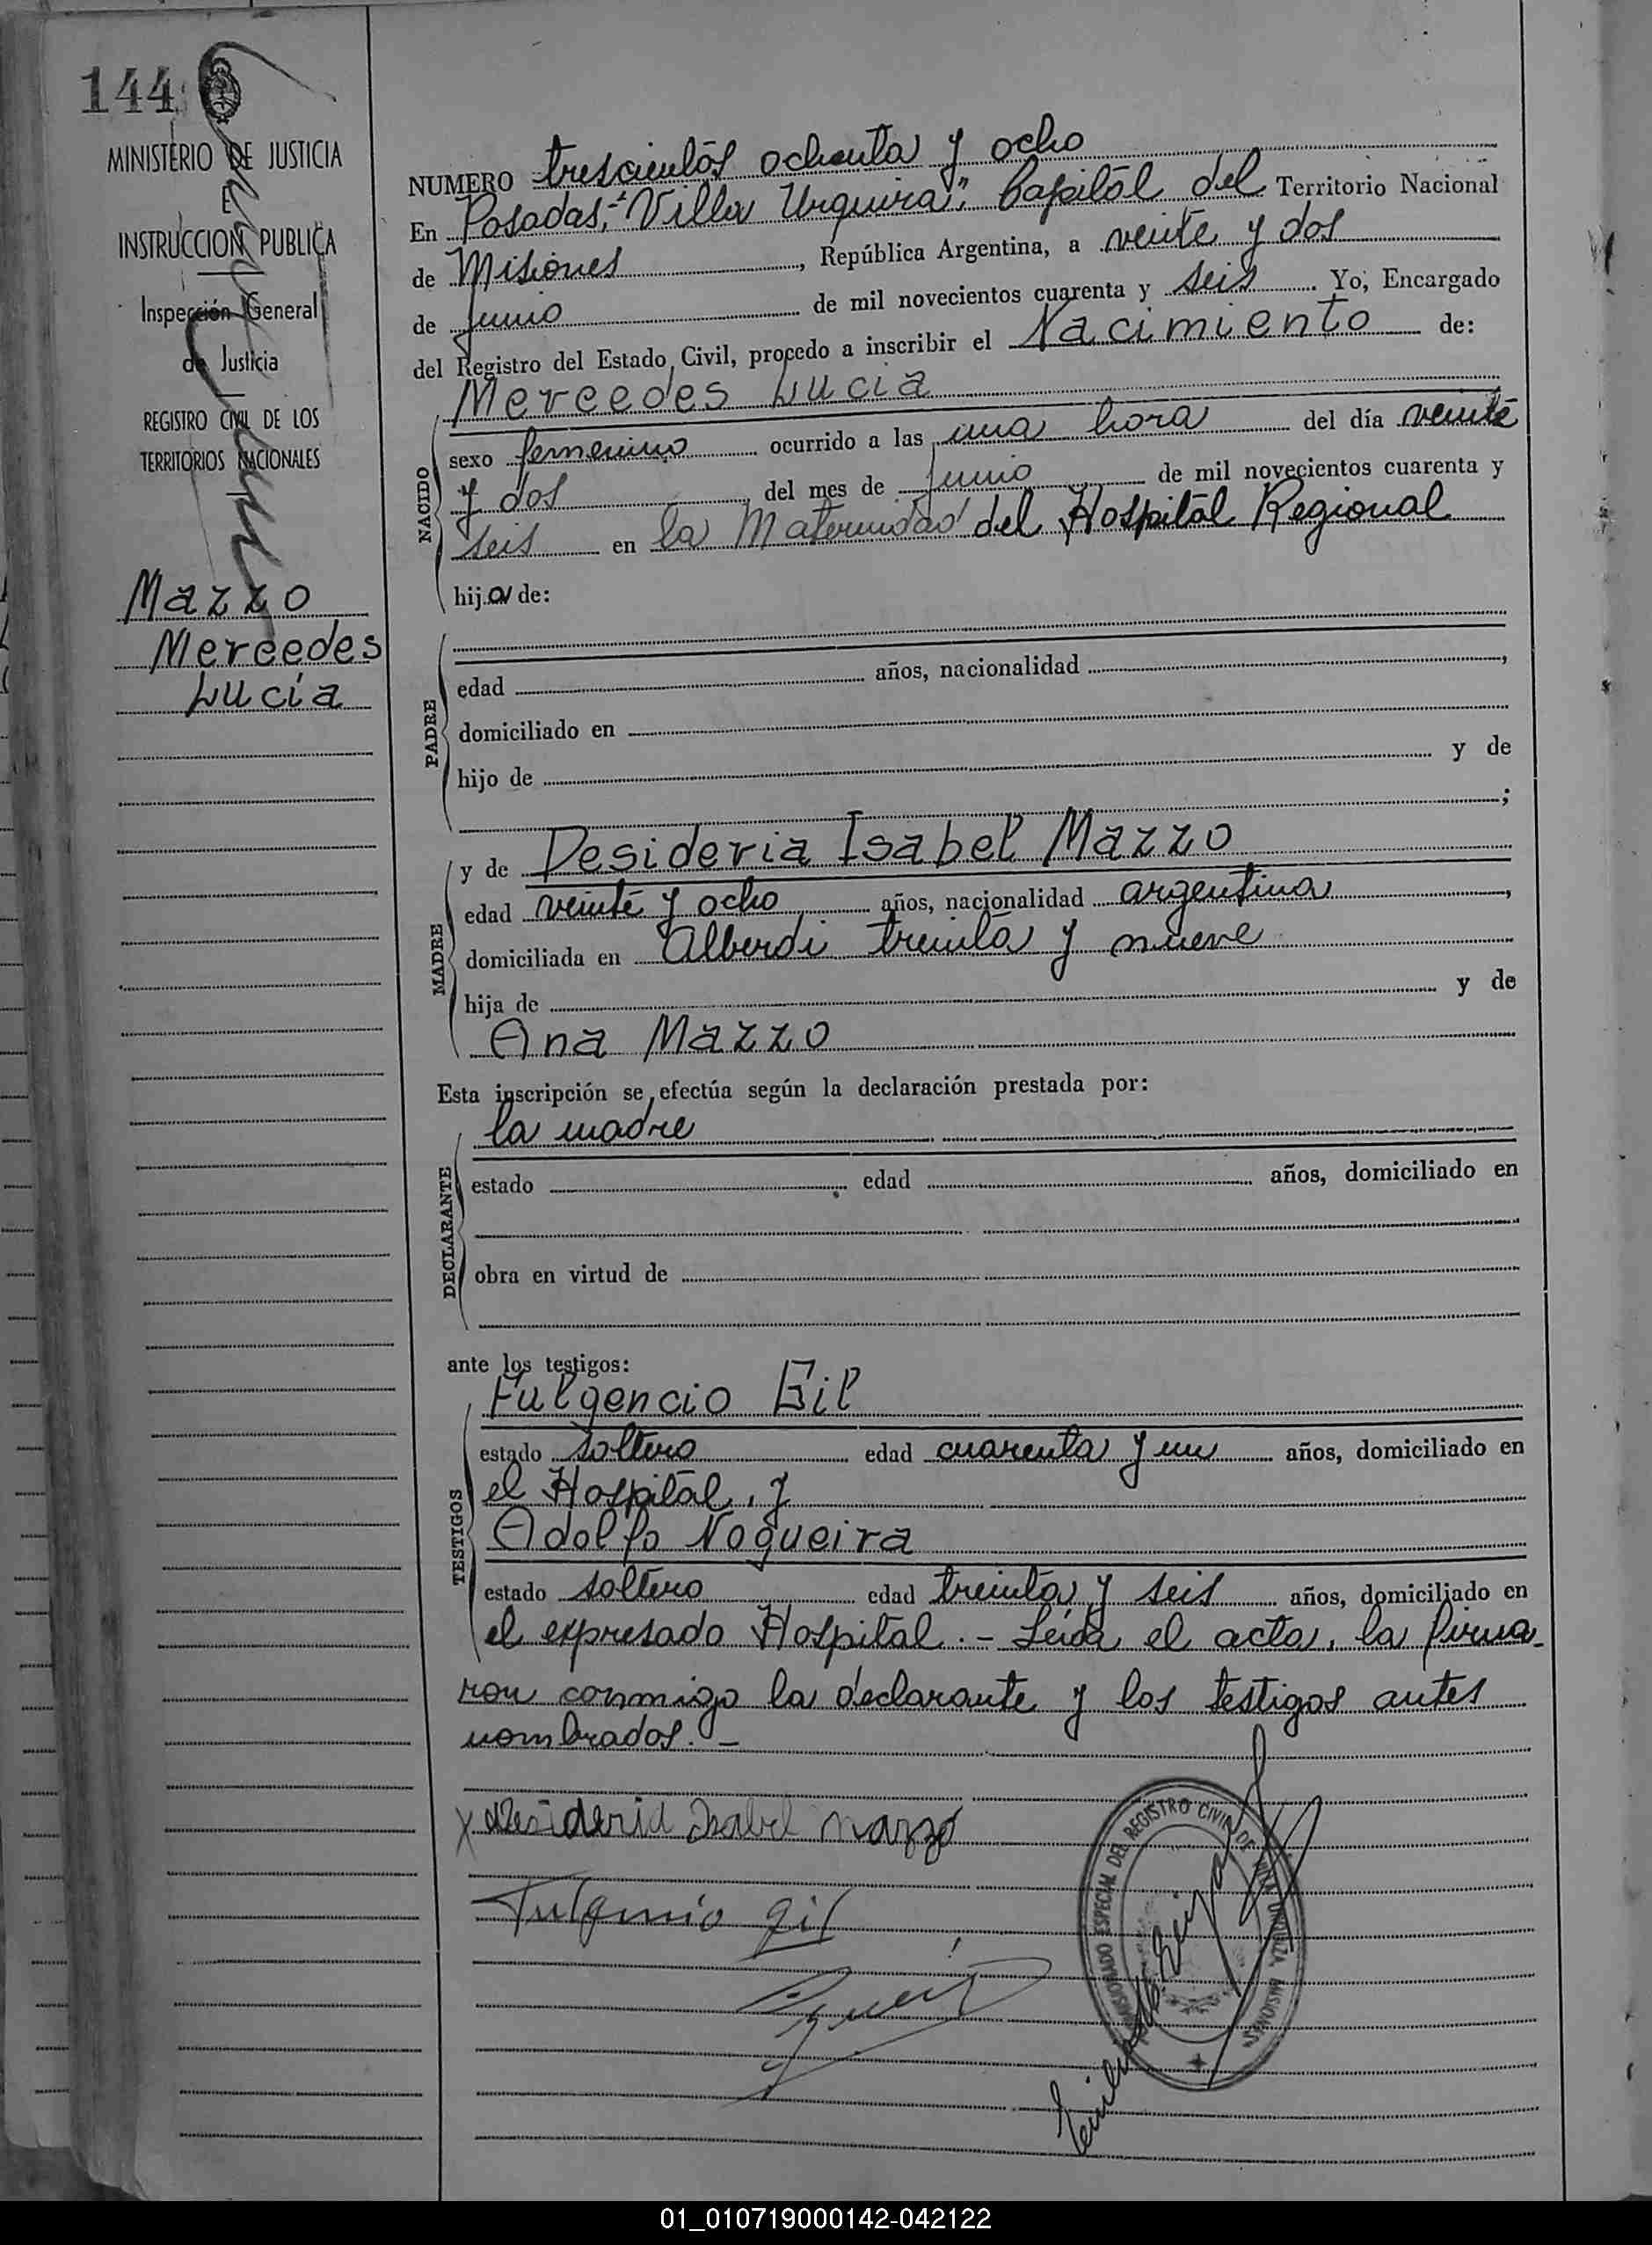 144
MINISTERIO DE JUSTICIA
E
INSTRUCCION PUBLICA
Inspección General
de Justicia
REGISTRO CIVIL DE LOS
TERRITORIOS NACIONALES
Mazzo
Mercedes
Lucía
NUMERO trescientos ochenta y ocho
En Posadas, "Villa Urquiza", Capital del Territorio Nacional
de Misiones, República Argentina, a veinte y dos
de junio de mil novecientos cuarenta y seis. Yo, Encargado
del Registro del Estado Civil, procedo a inscribir el Nacimiento de:
NACIDO
Mercedes Lucía
sexo femenino ocurrido a las una hora del día veinte
y dos, del mes de junio de mil novecientos cuarenta y
seis en la Maternidad del Hospital Regional
hija de:
PADRE
edad años, nacionalidad ,
domiciliado en
hijo de y de
;
MADRE
y de Desideria Isabel Mazzo
edad veinte y ocho años, nacionalidad argentina,
domiciliada en Alberdi treinta y nueve
hija de y de
Ana Mazzo
Esta inscripción se efectúa según la declaración prestada por:
DECLARANTE
la madre
estado edad años, domiciliado en
obra en virtud de
ante los testigos:
TESTIGOS
Fulgencio Gil
estado soltero edad cuarenta y un años, domiciliado en
el Hospital, y
Adolfo Nogueira
estado soltero edad treinta y seis años, domiciliado en
el expresado Hospital.- Leída el acta, la firma-
ron conmigo la declarante y los testigos antes
nombrados.-
x Desideria Isabel Mazzo
Fulgencio Gil
ESPECIAL DEL REGISTRO CIVIL DE VILLA URQUIZA MISIONES
01_010719000142-042122